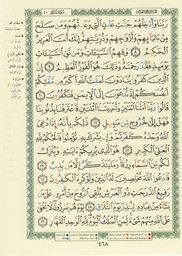 رَبَّنَا وَأَدْخِلْهُمْ جَنَّٰتِ عَدْنٍ ٱلَّتِى وَعَدتَّهُمْ وَمَن صَلَحَ
مِنْ ءَابَآئِهِمْ وَأَزْوَٰجِهِمْ وَذُرِّيَّٰتِهِمْ إِنَّكَ أَنتَ ٱلْعَزِيزُ
ٱلْحَكِيمُ ٨ وَقِهِمُ ٱلسَّيِّـَٔاتِ وَمَن تَقِ ٱلسَّيِّـَٔاتِ
يَوْمَئِذٍ فَقَدْ رَحِمْتَهُۥ وَذَٰلِكَ هُوَ ٱلْفَوْزُ ٱلْعَظِيمُ ٩ إِنَّ
ٱلَّذِينَ كَفَرُوا۟ يُنَادَوْنَ لَمَقْتُ ٱللَّهِ أَكْبَرُ مِن مَّقْتِكُمْ
أَنفُسَكُمْ إِذْ تُدْعَوْنَ إِلَى ٱلْإِيمَٰنِ فَتَكْفُرُونَ ١٠
قَالُوا۟ رَبَّنَآ أَمَتَّنَا ٱثْنَتَيْنِ وَأَحْيَيْتَنَا ٱثْنَتَيْنِ فَٱعْتَرَفْنَا بِذُنُوبِنَا
فَهَلْ إِلَىٰ خُرُوجٍ مِّن سَبِيلٍ ١١ ذَٰلِكُم بِأَنَّهُۥٓ إِذَا دُعِىَ
ٱللَّهُ وَحْدَهُۥ كَفَرْتُمْ وَإِن يُشْرَكْ بِهِۦ تُؤْمِنُوا۟ فَٱلْحُكْمُ لِلَّهِ ٱلْعَلِىِّ
ٱلْكَبِيرِ ١٢ هُوَ ٱلَّذِى يُرِيكُمْ ءَايَٰتِهِۦ وَيُنَزِّلُ
لَكُم مِّنَ ٱلسَّمَآءِ رِزْقًا وَمَا يَتَذَكَّرُ إِلَّا مَن يُنِيبُ ١٣
فَٱدْعُوا۟ ٱللَّهَ مُخْلِصِينَ لَهُ ٱلدِّينَ وَلَوْ كَرِهَ ٱلْكَٰفِرُونَ ١٤
رَفِيعُ ٱلدَّرَجَٰتِ ذُو ٱلْعَرْشِ يُلْقِى ٱلرُّوحَ مِنْ أَمْرِهِۦ عَلَىٰ مَن
يَشَآءُ مِنْ عِبَادِهِۦ لِيُنذِرَ يَوْمَ ٱلتَّلَاقِ ١٥ يَوْمَ هُم بَٰرِزُونَ لَا يَخْفَىٰ
عَلَى ٱللَّهِ مِنْهُمْ شَىْءٌ لِّمَنِ ٱلْمُلْكُ ٱلْيَوْمَ لِلَّهِ ٱلْوَٰحِدِ ٱلْقَهَّارِ ١٦
٤٦٨